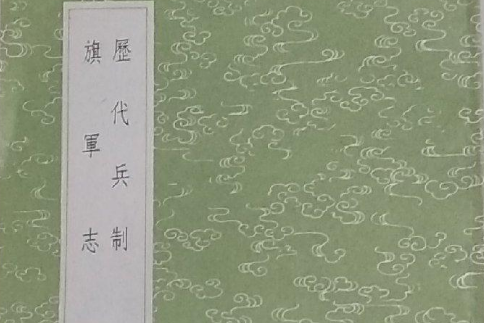 歷代兵制
旗軍志